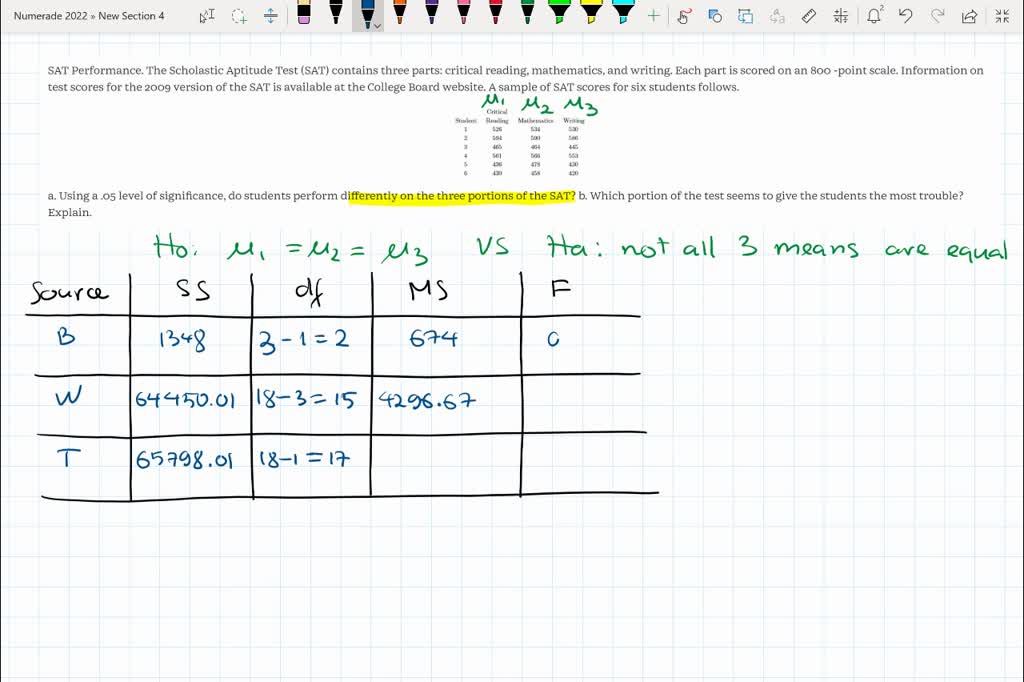 Numerade 2022 » New Section 4
2
SAT Performance. The Scholastic Aptitude Test (SAT) contains three parts: critical reading, mathematics, and writing. Each part is scored on an 800 -point scale. Information on
test scores for the 2009 version of the SAT is available at the College Board website. A sample of SAT scores for six students follows.
μ1 μ2 μ3
Critical
Student Reading Mathematics Writing
1 526 534 530
2 594 590 586
3 465 464 445
4 561 566 553
5 436 478 430
6 430 458 420
a. Using a .05 level of significance, do students perform differently on the three portions of the SAT? b. Which portion of the test seems to give the students the most trouble?
Explain.
Ho: μ1 = μ2 = μ3 VS Ha: not all 3 means are equal
Source SS df MS F
B 1348 3-1=2 674 0
W 64450.01 18-3=15 4296.67
T 65798.01 18-1=17